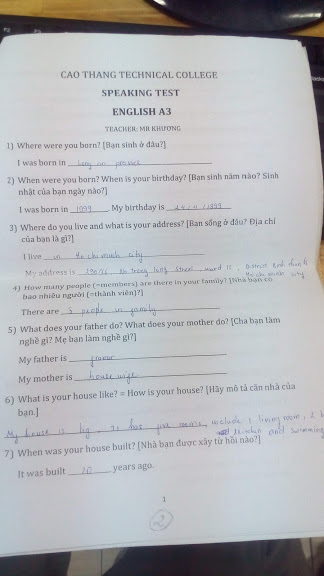 CAO THANG TECHNICAL COLLEGE
SPEAKING TEST
ENGLISH A3
TEACHER: MR KHƯƠNG
1) Where were you born? [Bạn sinh ở đâu?]
I was born in long an
2) When were you born? When is your birthday? [Bạn sinh năm nào? Sinh
nhật của bạn ngày nào?]
I was born in 1999. My birthday is
3) Where do you live and what is your address? [Bạn sống ở đâu? Địa chỉ
của bạn là gì?]
I live in Ho chi minh city
My address is
4) How many people (=members) are there in your family? [Nhà bạn có
bao nhiêu người (=thành viên)?]
There are 5 people in family
5) What does your father do? What does your mother do? [Cha bạn làm
nghề gì? Mẹ bạn làm nghề gì?]
My father is
My mother is house wife
6) What is your house like? = How is your house? [Hãy mô tả căn nhà của
bạn.]
My house is big include 1 living room, 2
and swimming
7) When was your house built? [Nhà bạn được xây từ hồi nào?]
It was built 20 years ago.
1
2